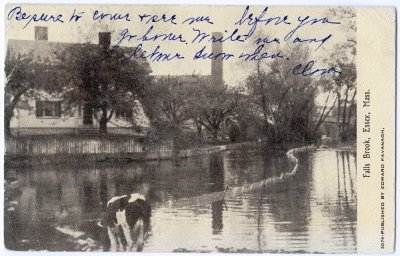 Be sure to come & see me before you
go home. Write me and
let me know when.
Clara
Falls Brook, Essex, Mass.
PUBLISHED BY EDWARD KAVANAGH.